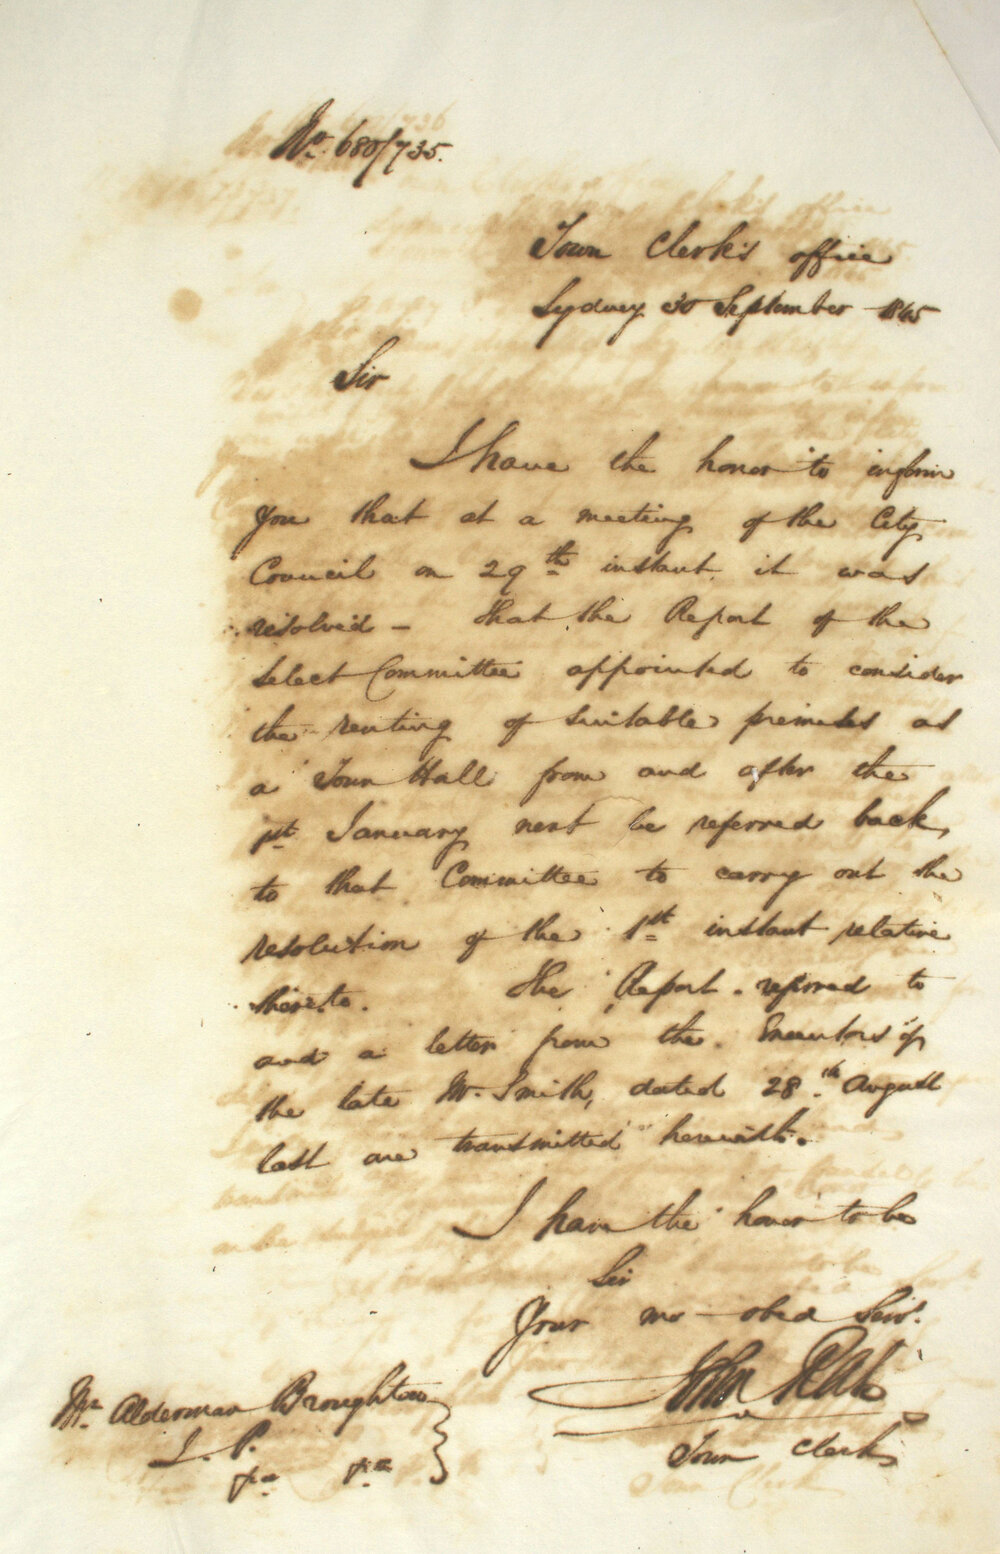 No. 680/735.
Town Clerk's office
Sydney 30 September 1845
Sir
I have the honor to inform
you that at a meeting of the City
Council on 29th instant it was
resolved - that the Report of the
Select Committee appointed to consider
the renting of suitable premises as
a Town Hall from and after the
1st January next be referred back,
to that Committee to carry out the
resolution of the 1st instant relative
thereto. The Report referred to
and a letter from the Executors of
the late Mr. Smith, dated 28th August
last are transmitted herewith.
I have the honor to be
Sir
Your mo obed Serv.
John
Town Clerk
Mr. Alderman Broughton
J. P.